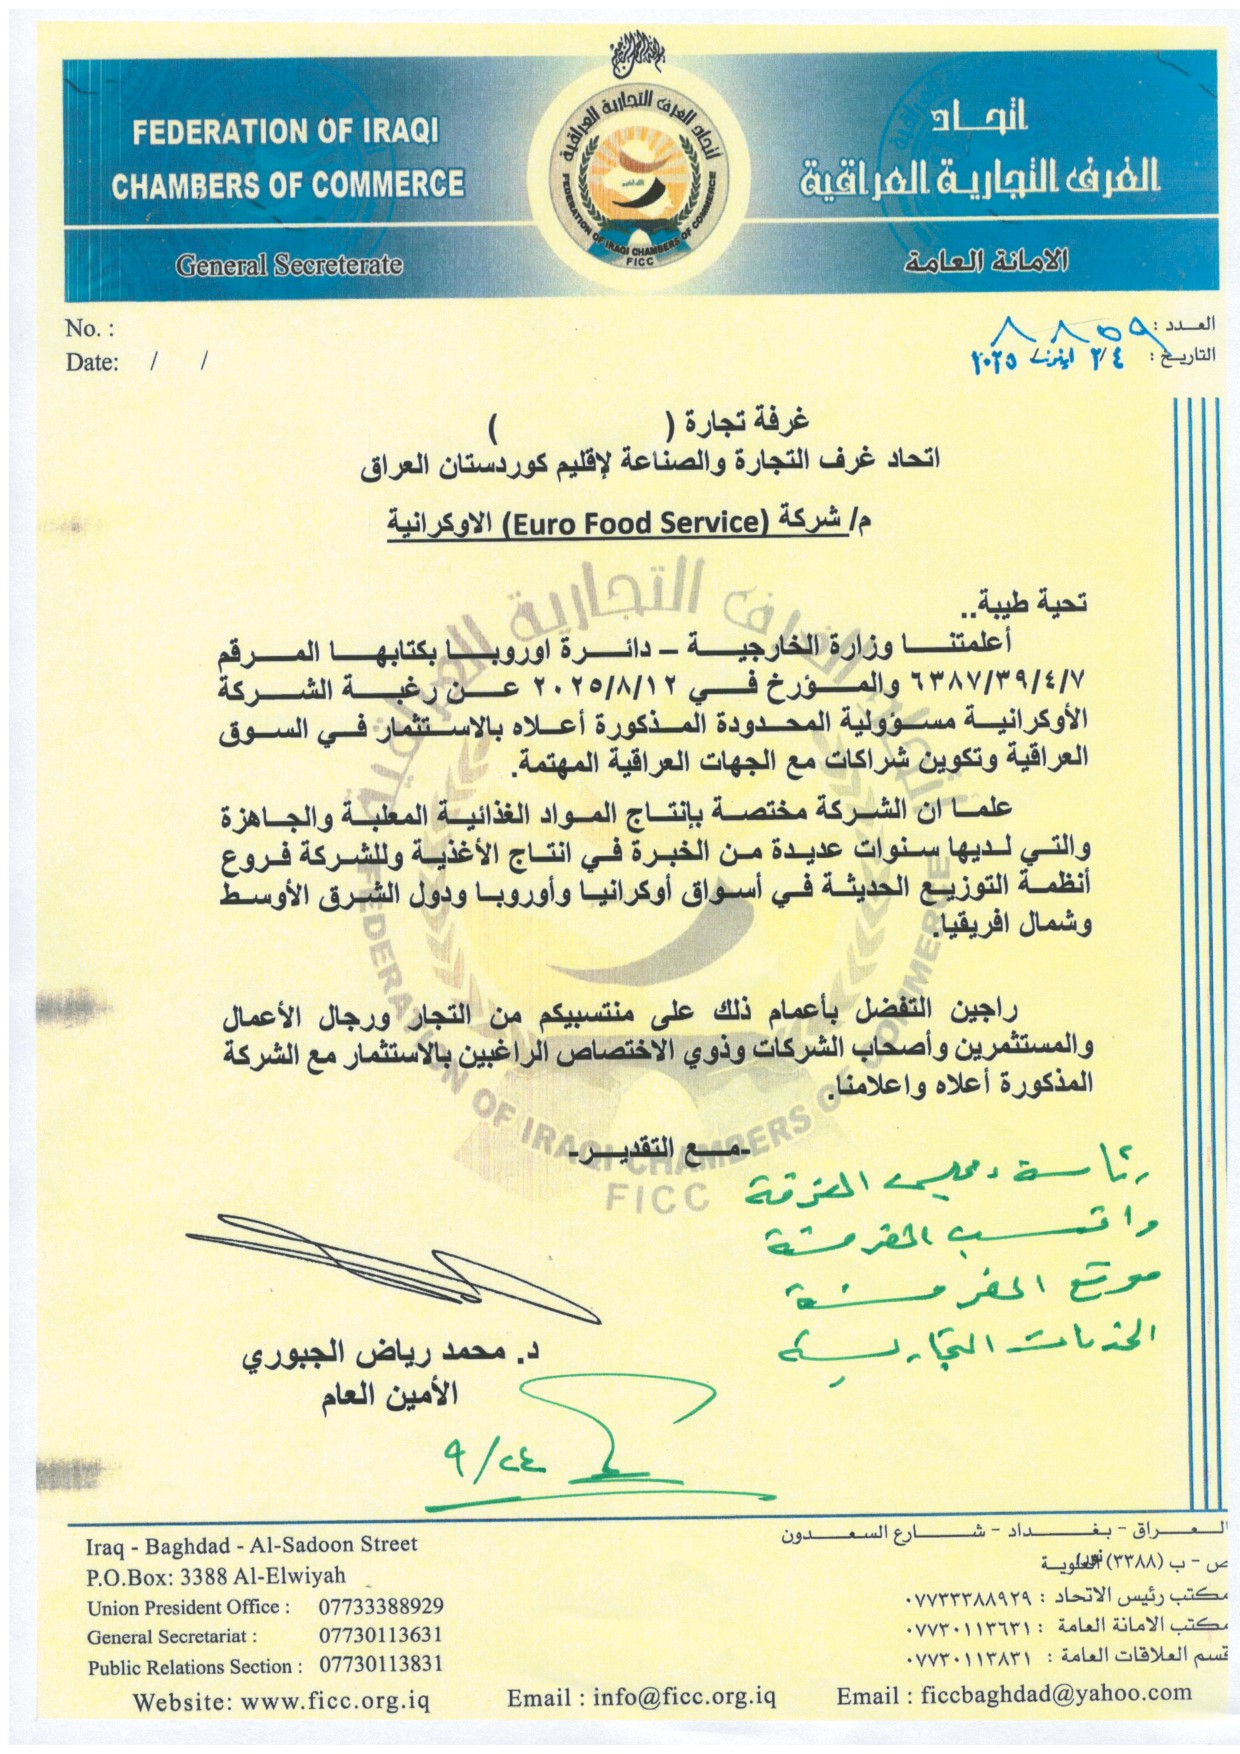 FEDERATION OF IRAQI
CHAMBERS OF COMMERCE
General Secreterate
اتحاد الغرف التجارية العراقية
FEDERATION OF IRAQI CHAMBERS OF COMMERCE
FICC
اتحاد
الغرف التجارية العراقية
الامانة العامة
No. :
Date: / /
العدد : ٨٨٥٩
التاريخ : ٢٠٢٥
غرفة تجارة ( )
اتحاد غرف التجارة والصناعة لإقليم كوردستان العراق
م/ شركة (Euro Food Service) الاوكرانية
تحية طيبة..
أعلمتنا وزارة الخارجية – دائرة اوروبا بكتابها المرقم
٦٣٨٧/٣٩/٤/٧ والمؤرخ في ٢٠٢٥/٨/١٢ عن رغبة الشركة
الأوكرانية مسؤولية المحدودة المذكورة أعلاه بالاستثمار في السوق
العراقية وتكوين شراكات مع الجهات العراقية المهتمة.
علما ان الشركة مختصة بإنتاج المواد الغذائية المعلبة والجاهزة
والتي لديها سنوات عديدة من الخبرة في انتاج الأغذية وللشركة فروع
أنظمة التوزيع الحديثة في أسواق أوكرانيا وأوروبا ودول الشرق الأوسط
وشمال افريقيا.
راجين التفضل بأعمام ذلك على منتسبيكم من التجار ورجال الأعمال
والمستثمرين وأصحاب الشركات وذوي الاختصاص الراغبين بالاستثمار مع الشركة
المذكورة أعلاه واعلامنا.
-مع التقدير-
الغرفة
موقع الغرفة
الخدمات التجارية
د. محمد رياض الجبوري
الأمين العام
٩/٢٤
Iraq - Baghdad - Al-Sadoon Street
P.O.Box: 3388 Al-Elwiyah
Union President Office : 07733388929
General Secretariat : 07730113631
Public Relations Section : 07730113831
العراق - بغداد - شارع السعدون
ص - ب (٣٣٨٨) العلوية
مكتب رئيس الاتحاد : ٠٧٧٣٣٣٨٨٩٢٩
مكتب الامانة العامة : ٠٧٧٣٠١١٣٦٣١
قسم العلاقات العامة : ٠٧٧٣٠١١٣٨٣١
Website: www.ficc.org.iq
Email : info@ficc.org.iq
Email : ficcbaghdad@yahoo.com